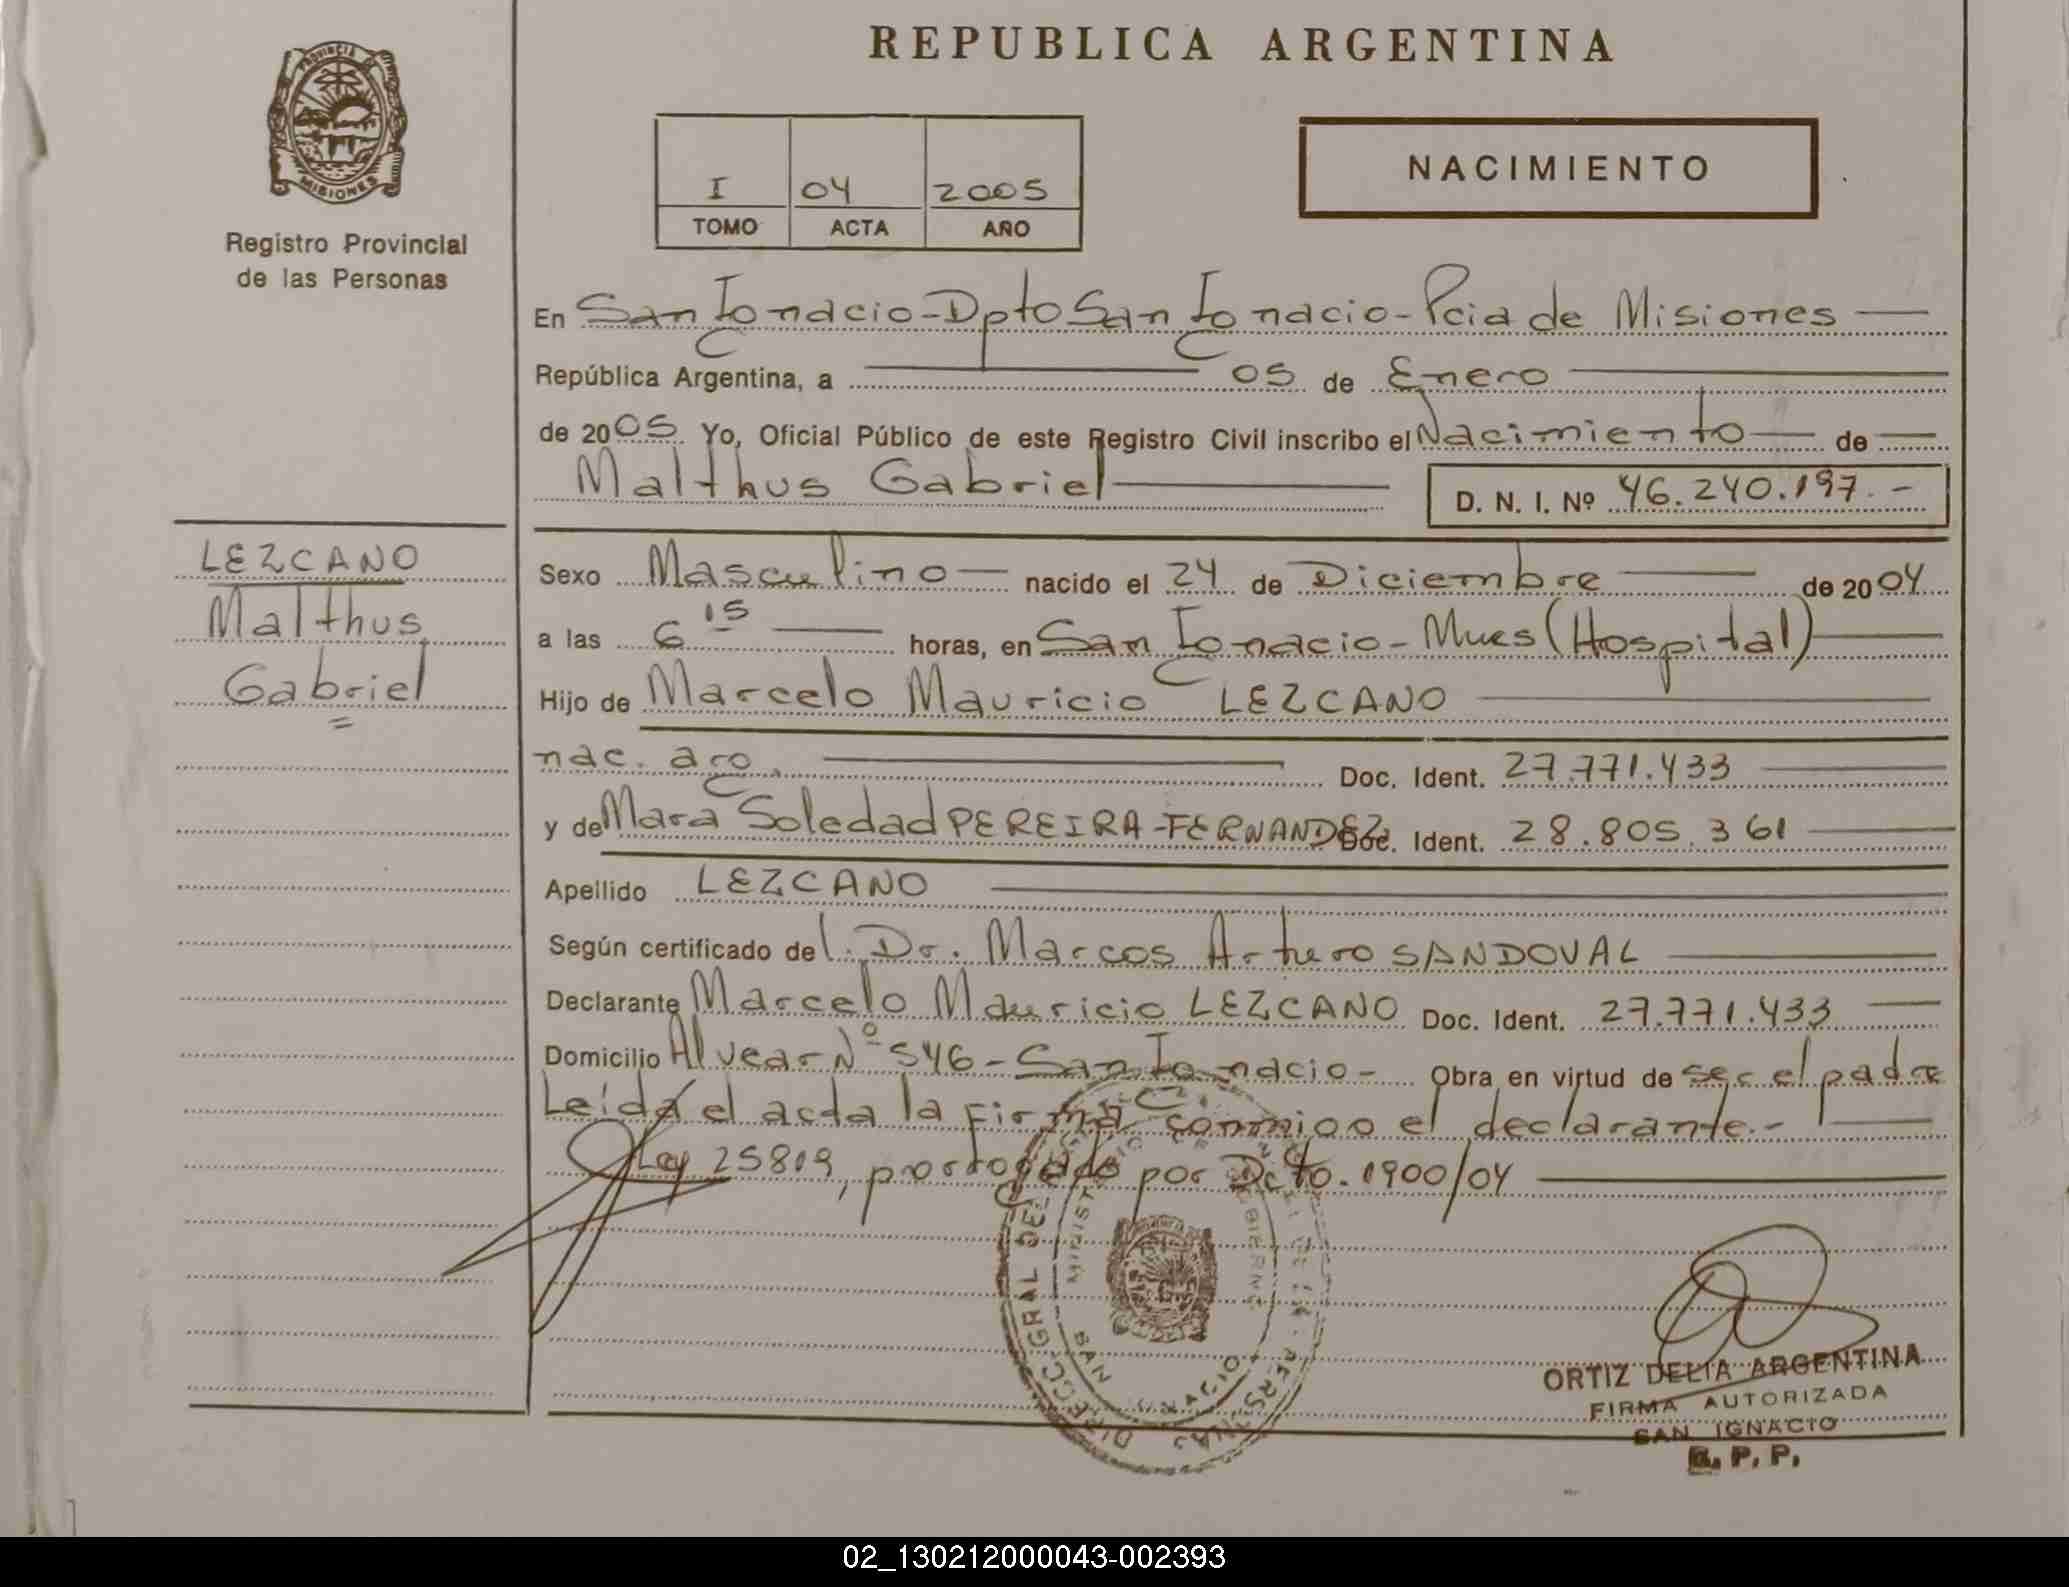 REPUBLICA ARGENTINA
PROVINCIA DE
MISIONES
Registro Provincial
de las Personas
I 04 2005
TOMO ACTA AÑO
NACIMIENTO
En San Ignacio-Dpto San Ignacio-Pcia de Misiones
República Argentina, a 05 de Enero
de 2005 Yo, Oficial Público de este Registro Civil inscribo el Nacimiento de
Malthus Gabriel D. N. I. Nº 46.240.197.-
LEZCANO
Malthus
Gabriel
Sexo Masculino nacido el 24 de Diciembre de 2004
a las 6 15 horas, en San Ignacio-Mnes (Hospital)
Hijo de Marcelo Mauricio LEZCANO
nac. arg. Doc. Ident. 27.771.433
y de Mara Soledad PEREIRA-FERNANDEZ Doc. Ident. 28.805.361
Apellido LEZCANO
Según certificado del. Dr. Marcos Arturo SANDOVAL
Declarante Marcelo Mauricio LEZCANO Doc. Ident. 27.771.433
Domicilio Alvear Nº 546-San Ignacio- Obra en virtud de ser el padre
Leída el acta la firma conmigo el declarante.-
Ley 25819, prorrogado por Dcto. 1900/04
MINISTERIO DE GOBIERNO
SAN IGNACIO
ORTIZ DELIA ARGENTINA
FIRMA AUTORIZADA
SAN IGNACIO
R. P. P.
02_130212000043-002393